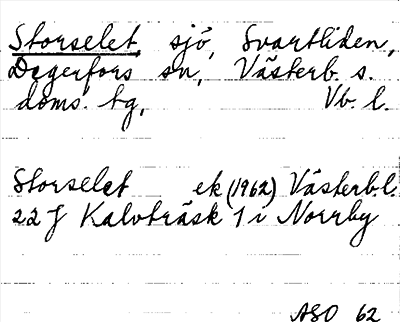 Storselet, sjö, Svartliden,
Degerfors sn, Västerb. s.
doms. tg, Vb. l.
Storselet ek (1962) Västerb.l.
22 J Kalvträsk 1 i Norrby
ASO 62